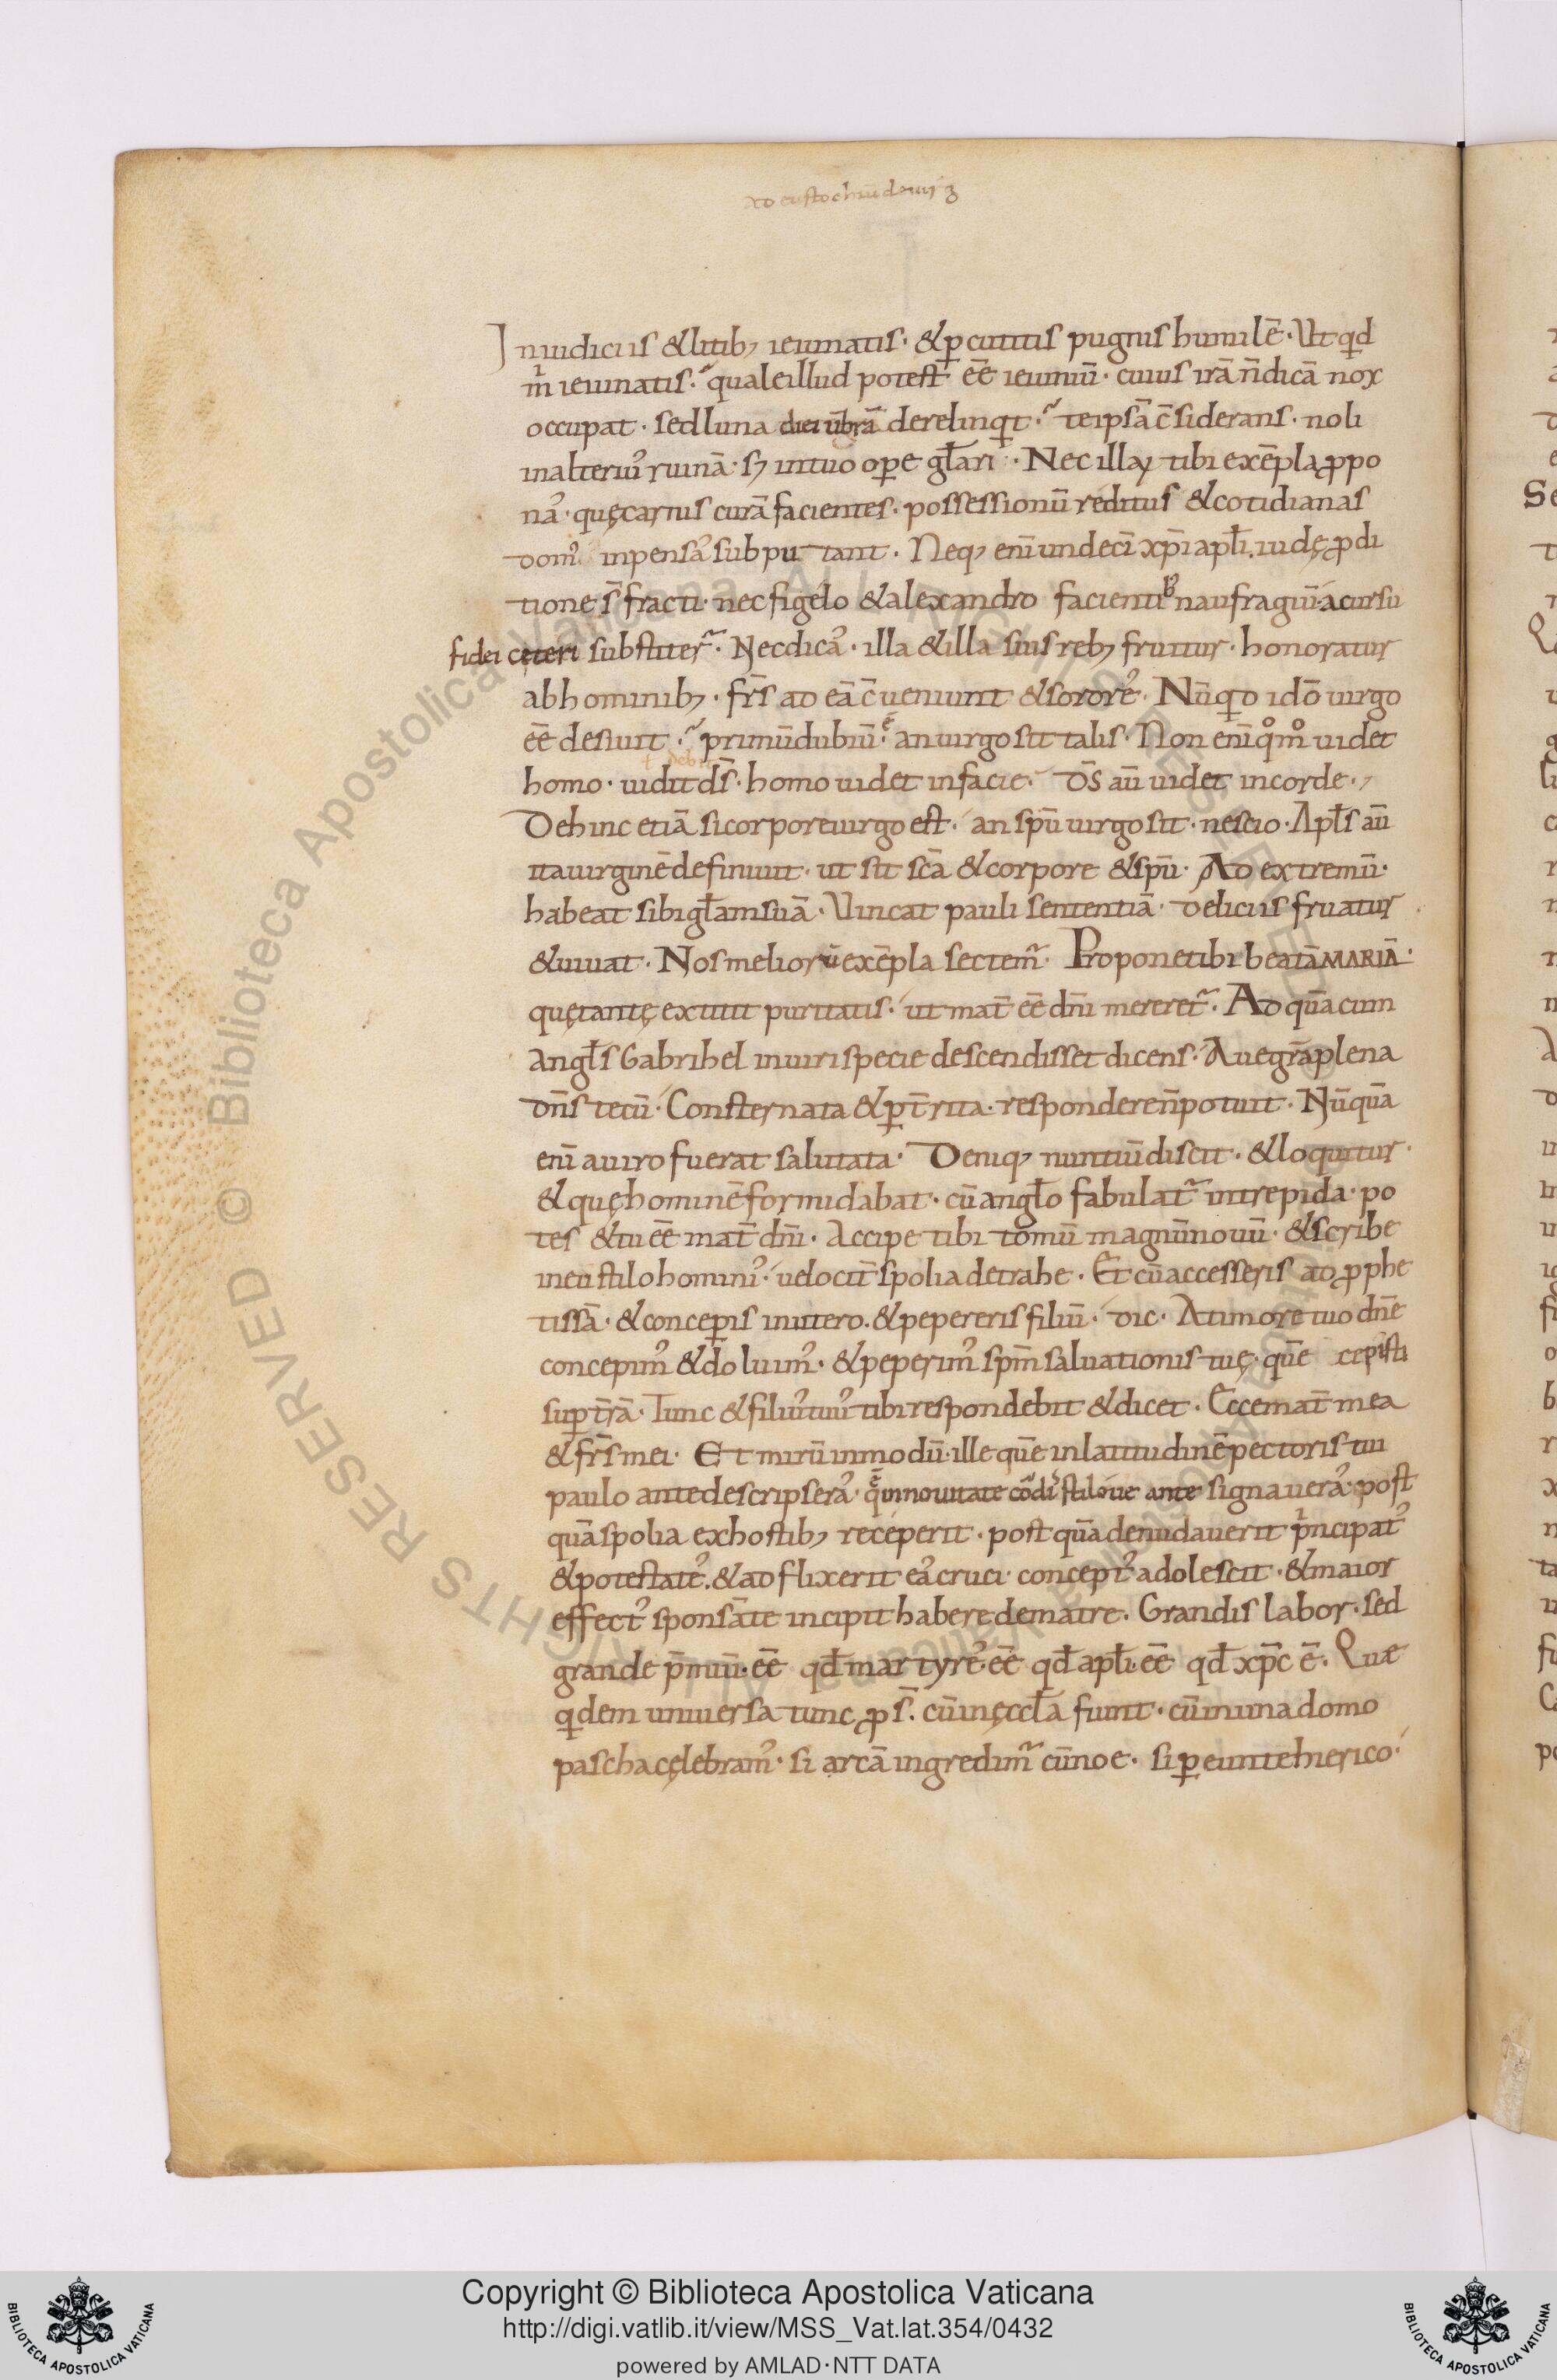 ad eustochiū de uirg
In iudiciis & litib; ieiunatis· & ꝑcutitis pugnis humilē· Vt qd
m̄ ieiunatis· quale illud potest ēē ieiuniū· cuius irā n̄ dicā nox
occupat· sed luna diei ūbrā derelinqt· te ipsā c̄siderans· noli
in alteriuʼ ruinā· s; in tuo oꝑe gl̄ari· Nec illaꝝ tibi exēpla ꝓpo
naʼ· quę carnis curā facientes· possessionū reditus & cotidianas
domʼ inpensaʼ subputant· Neq; eni undeci xp̄i apl̄i· iudę ꝓdi
tione s̄ fracti· nec figelo & alexandro facientib; naufragiū· a cursu
fidei ceteri substiter̄· Nec dicaʼ· illa & illa suis reb; fruitur· honoratur
ab hominib;· fr̄s ad eā c̄ueniunt & sororeʼ· Nūqd idō uirgo
ēē desiuit· primū dubiū ē an uirgo sit talis· Non eni qͦmͦ uidet
homo· uidit ds̄· homo uidet in facie· ds̄ aū uidet in corde·
Dehinc etiā si corpore uirgo est· an spū uirgo sit· nescio· Apl̄s aū
ita uirginē definiuit· ut sit scā & corpore & spū· Ad extremū·
habeat sibi gl̄am suā· Vincat pauli sententiā· deliciis fruatur
& uiuat· Nos meliorū exēpla sectem̄· Propone tibi beatā MARIĀ·
quę tantę extitit puritatis· ut mat̄ ēē dn̄i mereret̄· Ad quā cum
angl̄s Gabrihel in uiri specie descendisset dicens· Aue grā plena
dn̄s tecū· Consternata & ꝑt̄rita· respondere n̄ potuit· Nūquā
eni a uiro fuerat salutata· Deniq; nuntiū discit· & loquitur·
& quę hominē formidabat· cū angl̄o fabulat̄ intrepida· po
tes & tu ēē mat̄ dn̄i· Accipe tibi tomū magnū nouū· & scribe
in eu stilo hominiʼ· uelocit̄ spolia detrahe· Et cū accesseris ad ꝓphe
tissā· & conceꝑis in utero· & pepereris filiū· dic· A timore tuo dn̄e
concepimʼ & doluimʼ· & peperimʼ spm̄ saluationis tuę· quē cepisti
suꝑ t̄rā· Tunc & filiuʼ tuuʼ tibi respondebit & dicet· Ecce mat̄ mea
& fr̄s mei· Et mirū in modū· ille quē in latitudinē pectoris tui
paulo ante descripseraʼ· quē in nouitate cordis stilo ue ante signaueraʼ· post
quā spolia ex hostib; receperit· post quā denudauerit pncipatʼ
& potestateʼ· & adflixerit eaʼ cruci· conceptʼ adolescit· & maior
effectʼ sponsā te incipit habere de matre· Grandis labor· sed
grande p̄miū· ēē qd̄ martyreʼ· ēē qd̄ apl̄i· ēē qd̄ xp̄c ē· Quæ
qdem uniuersa tunc ꝓs̄· cū in ęccl̄a fiunt· cū in una domo
pascha cęlebramʼ· si arcā ingredim̄ cū noe· si ꝑeunte hierico·
Copyright © Biblioteca Apostolica Vaticana
http://digi.vatlib.it/view/MSS_Vat.lat.354/0432
powered by AMLAD·NTT DATA